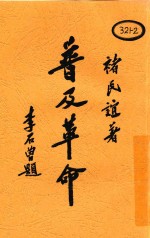 321-2
褚民誼著
普及革命
李石曾題